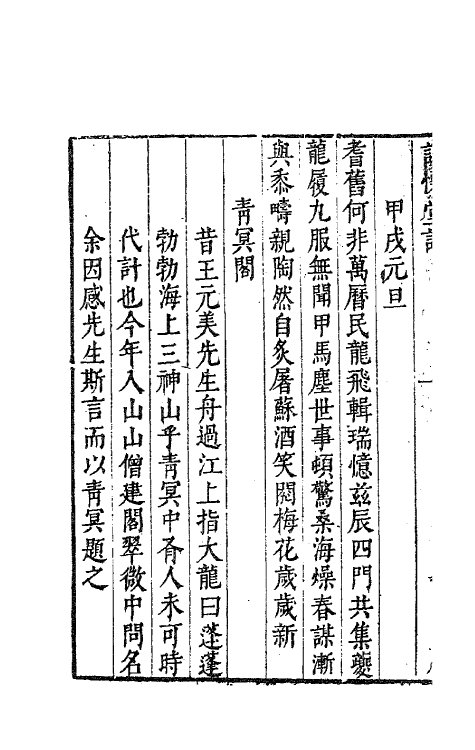 甲戌元旦
耆舊何非萬曆民龍飛輯瑞憶茲辰四門共集夔
龍履九服無聞甲馬塵世事頓驚桑海燥春謀漸
與黍疇親陶然自炙屠蘇酒笑閱梅花歲歲新
青冥閣
昔王元美先生舟過江上指大龍曰蓬蓬
勃勃海上三神山乎青冥中有人未可時
代計也今年入山山僧建閣翠微中問名
余因感先生斯言而以青冥題之